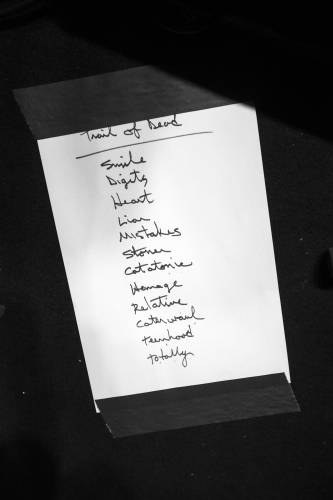 Trail of Dead
Smile
Digits
Heart
Liar
Mistakes
Stoner
Catatonic
Homage
Relative
Caterwaul
teenhood
totally